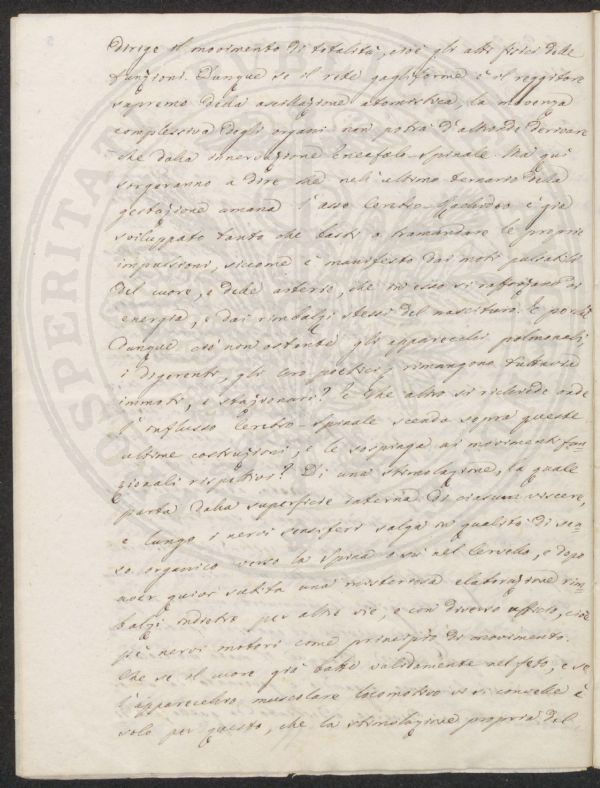 dirige il movimento di totalità, cioè gli atti fisici delle
funzioni. Dunque se il rete gangliforme è il reggitore
supremo della oscillazione atomistica, la movenza
complessiva degli organi non potrà d'altronde derivare
che dalla innervazione Encefalo-spinale. Ma qui
sorgeranno a dire che nell'ultimo ternario della
gestazione umana l'asse Cerebro-Rachideo è già
sviluppato tanto che basti a tramandare le proprie
impulsioni, siccome è manifesto dai moti pulsatili
del cuore, e delle arterie, che in esso si rafforzano di
energia, e dai rimbalzi stessi del nascituro. E perchè
dunque ciò non ostante gli apparecchi polmonali,
i digerenti, gli uropoetici rimangono tuttavia
immoti, e stazionari? E che altro si richiede onde
l'influsso Cerebro-Spinale scenda sopra queste
ultime costruzioni, e le sospinga ai movimenti fun-
zionali rispettivi? Di una stimolazione, la quale
parta dalla superficie interna di ciascun viscere,
e lungo i nervi sensiferi salga in qualità di sen-
so organico verso la spina e sin nel Cervello, e dopo
aver quivi subita una misteriosa elaborazione rim-
balzi indietro per altre vie, e con diverso ufficio, cioè
pe' nervi motori come principio di movimento.
Che se il cuore già batte validamente nel feto, e se
l'apparecchio muscolare locomotivo vi si convelle è
solo per questo, che la stimolazione propria del
SPERITATI PUBLICAE